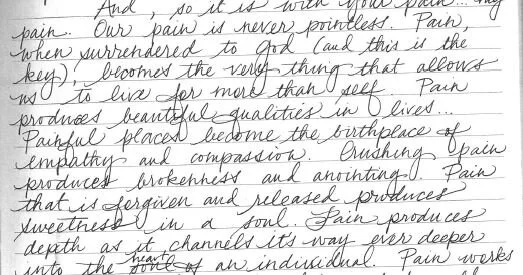 And, so it is with your pain... my
pain. Our pain is never pointless. Pain,
when surrendered to God (and this is the
key), becomes the very thing that allows
us to live for more than self. Pain
produces beautiful qualities in lives...
Painful places become the birthplace of
empathy and compassion. Crushing pain
produces brokenness and anointing. Pain
that is forgiven and released produces
sweetness in a soul. Pain produces
depth as it channels it's way ever deeper
into the heart of an individual. Pain works